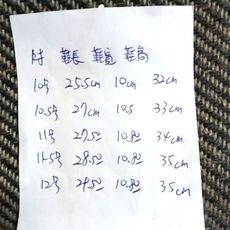 尺寸 鞋長 鞋寬 鞋高
10号 25.5cm 10cm 32cm
10.5号 27cm 10.5 33cm
11号 27.5 10.8 34cm
11.5号 28.5 10.8 35cm
12号 29.5 10.8 35cm